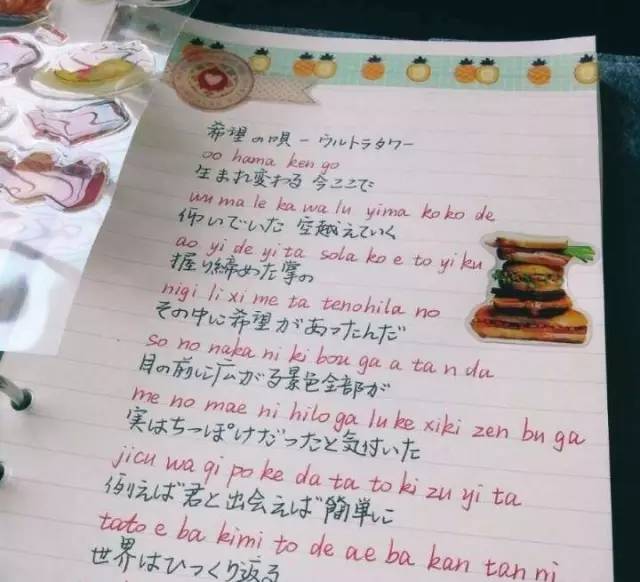 希望の唄 - ウルトラタワー
oo hama ken go
生まれ変わる 今ここで
wu ma le ka wa lu yima koko de
仰いでいた 空越えていく
ao yi de yi ta sola ko e to yi ku
握り締めた掌の
nigi li xi me ta tenohila no
その中に希望があったんだ
so no naka ni ki bou ga a ta n da
目の前に広がる景色全部が
me no mae ni hilo ga lu ke xiki zen bu ga
実はちっぽけだったと気付いた
jicu wa qi po ke da ta to ki zu yi ta
例えば君と出会えば簡単に
tato e ba kimi to de ae ba kan tan ni
世界はひっくり返る